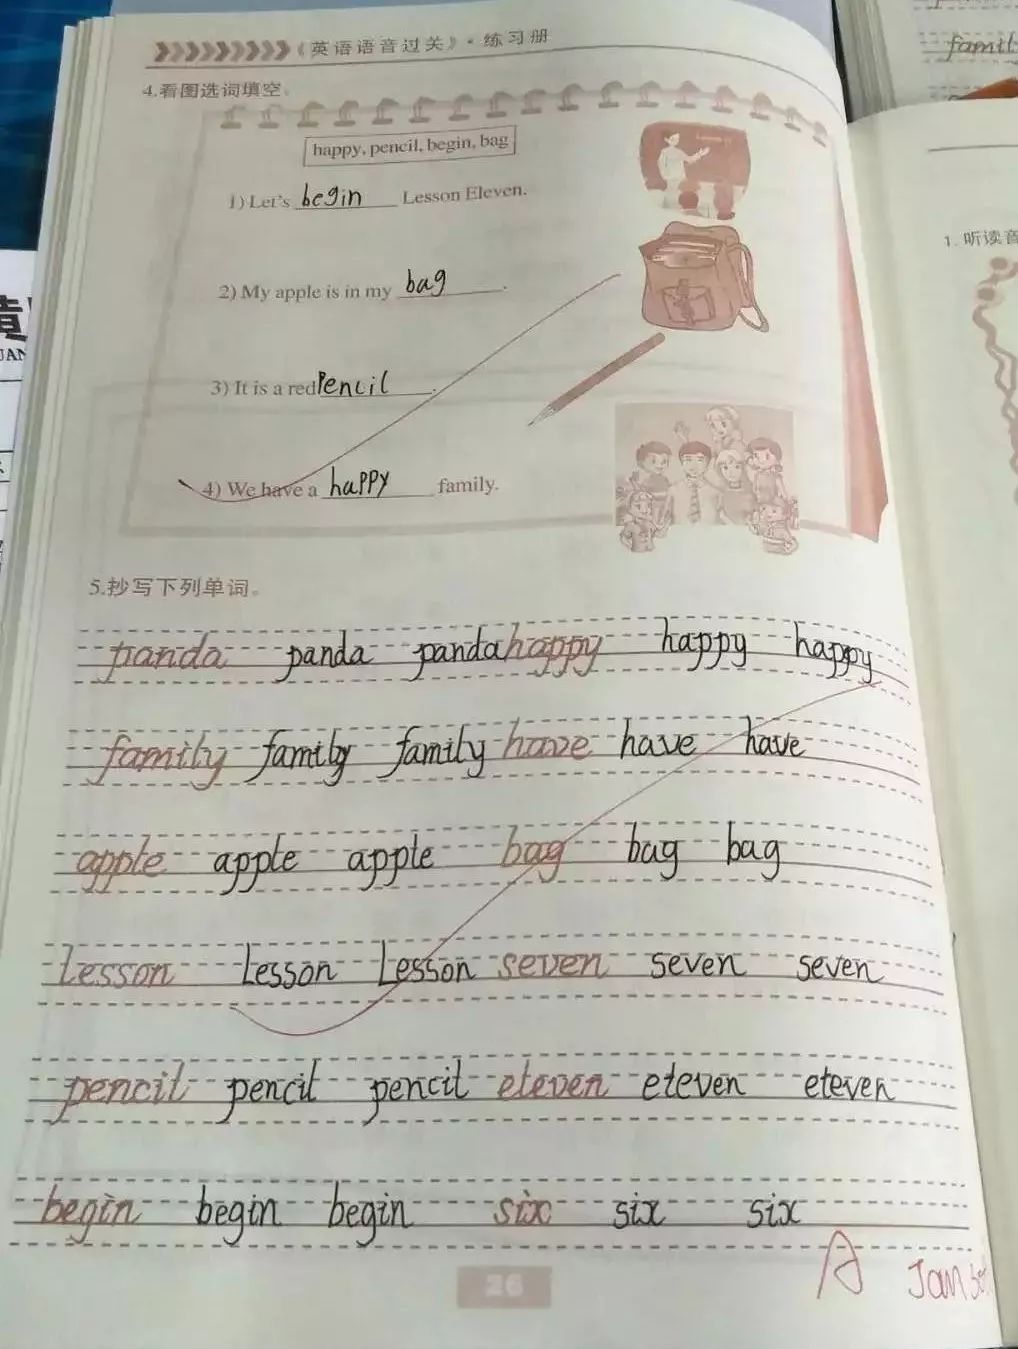 《英语语音过关》·练习册
4.看图选词填空。
happy, pencil, begin, bag
1) Let's begin Lesson Eleven.
2) My apple is in my bag.
3) It is a red Pencil.
4) We have a happy family.
5.抄写下列单词。
panda panda panda happy happy happy
family family family have have have
apple apple apple bag bag bag
Lesson Lesson Lesson seven seven seven
pencil pencil pencil eleven eleven eleven
begin begin begin six six six
A
26
famil
1. 听读音